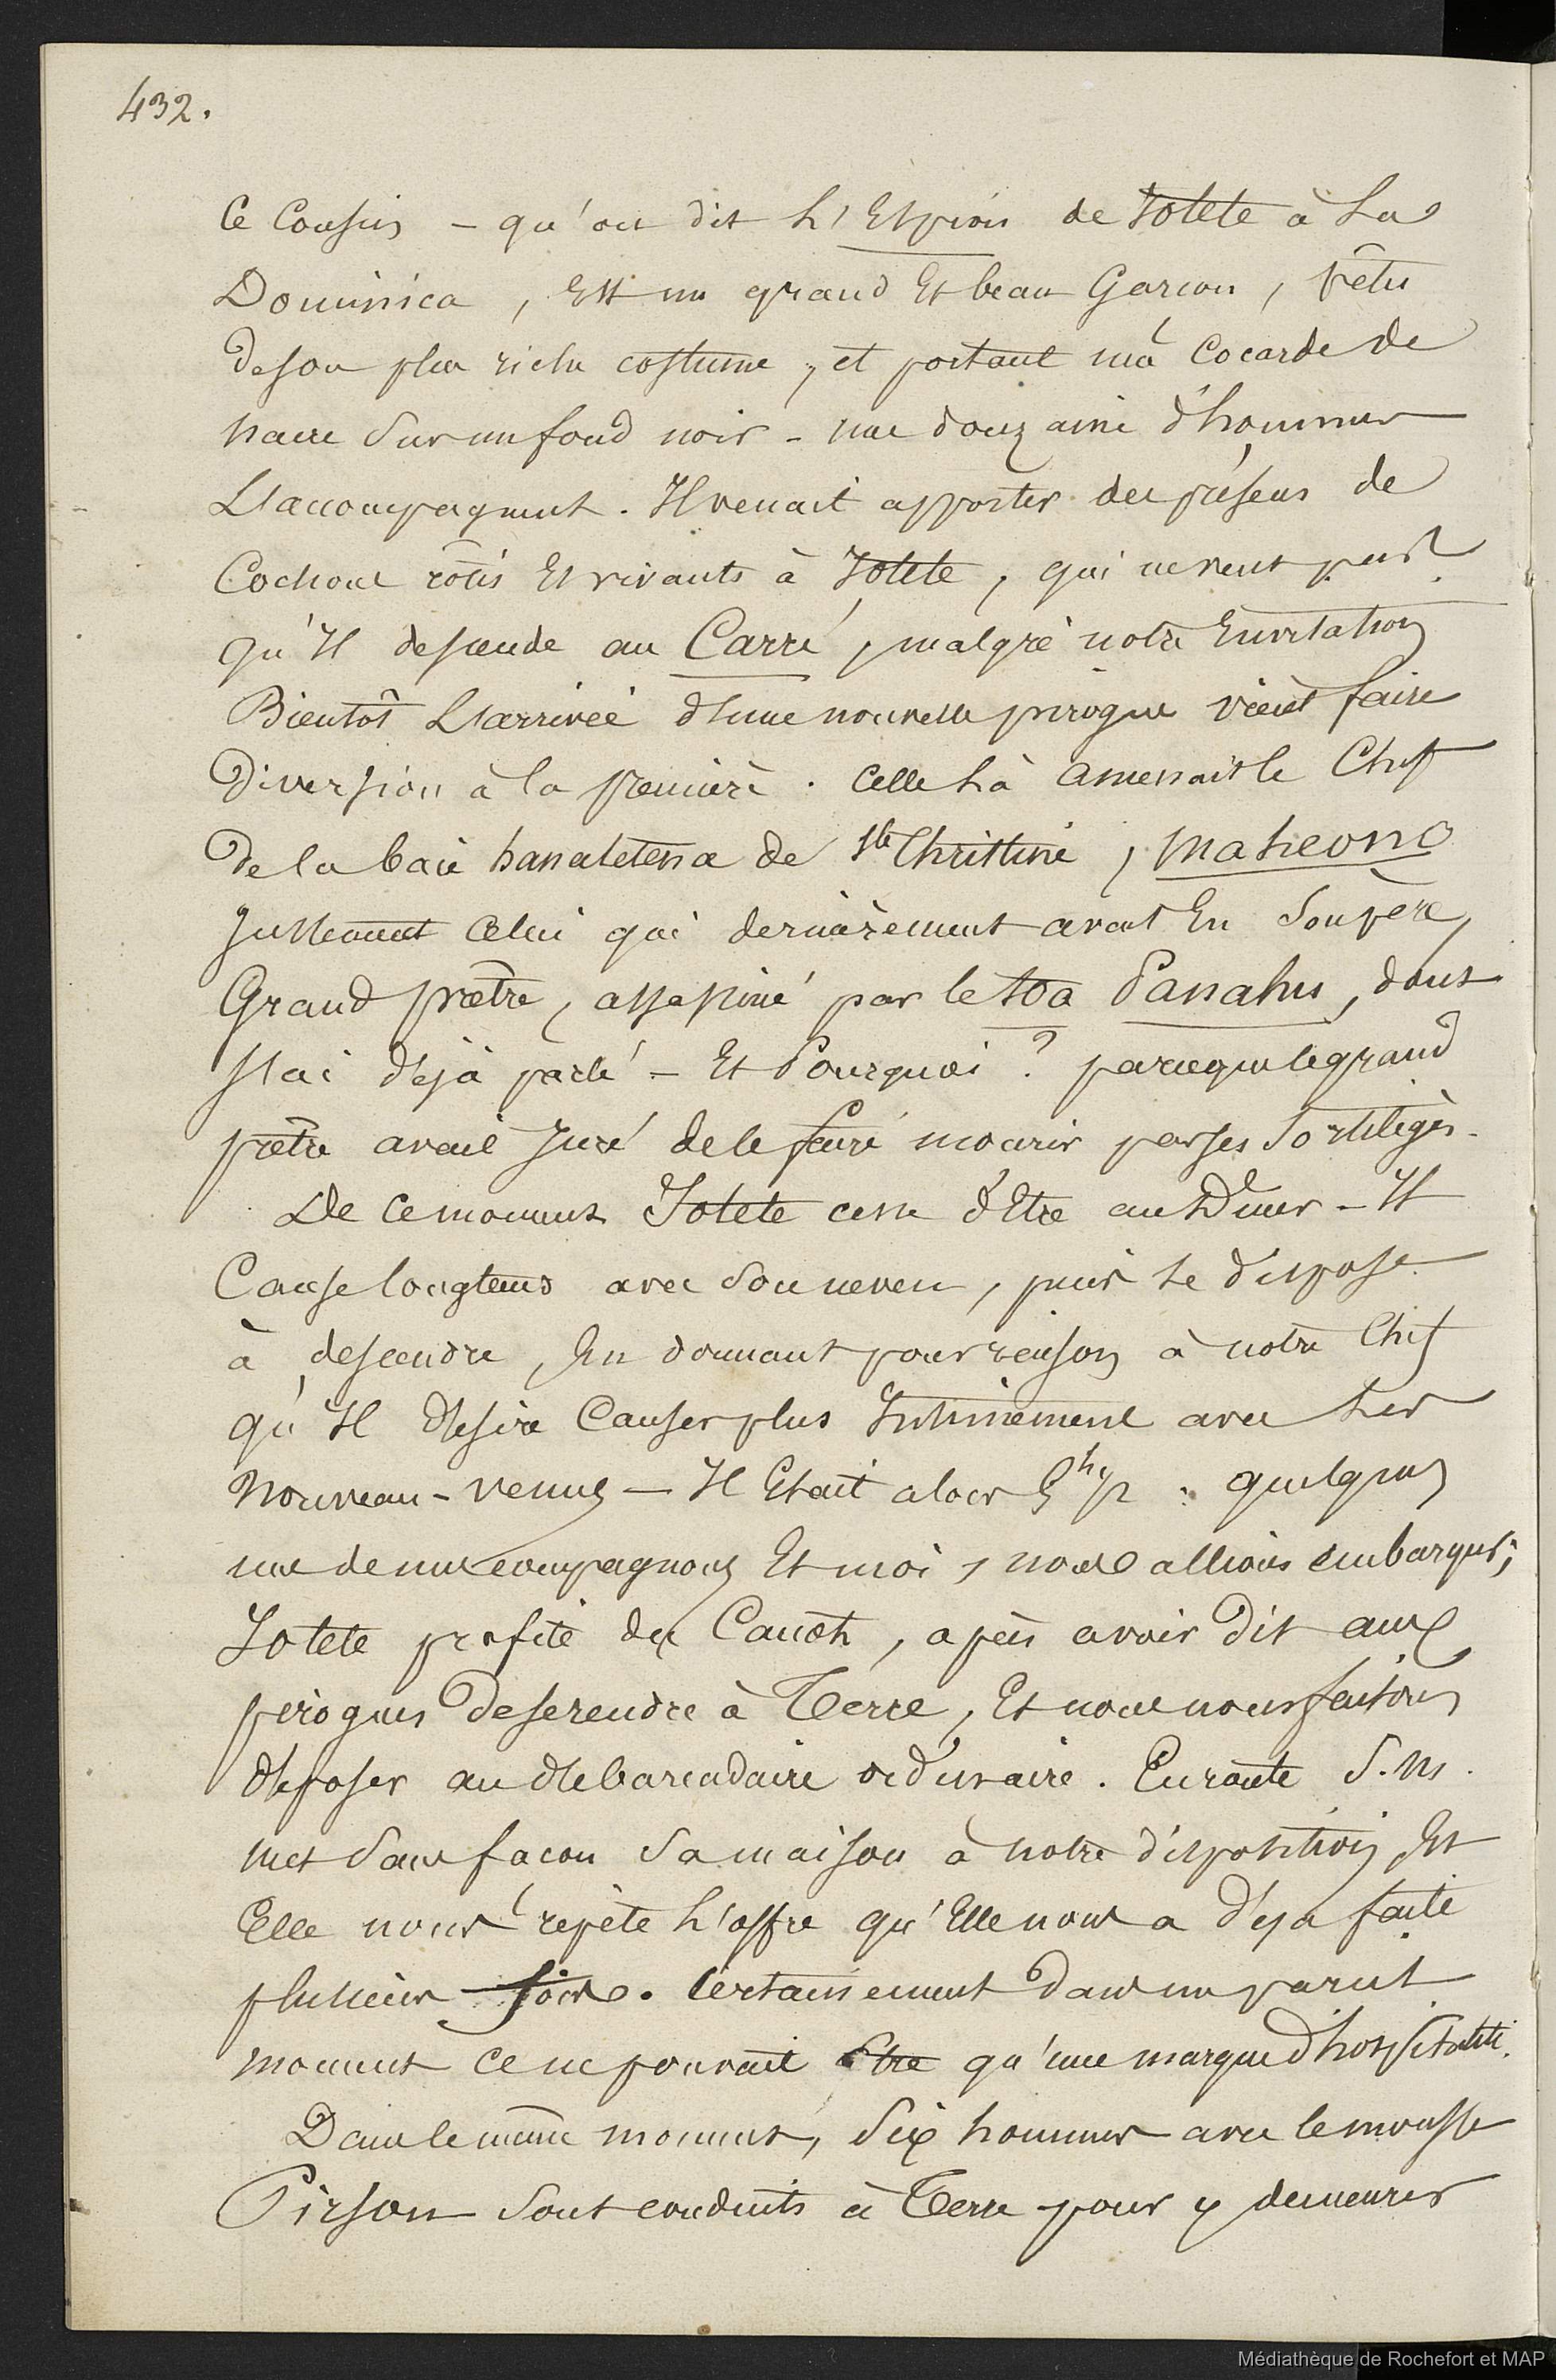 432.
Ce Cousin – qu'on dit L'Espion de Iotete à La
Dominica, Est un grand Et beau Garcon, vêtu
de son plus riche costume, et portant une Cocarde de
nacre Sur un fond noir – une douzaine d'hommes
L'accompagnent. Il venait apporter des présens de
Cochons rôtis Et vivants à Iotete, qui ne veut pas
qu'Il descende au Carré, malgré notre Invitation
Bientôt L'arrivée d'une nouvelle pirogue vient faire
Diversion à la Premiere. Celle Là amenait le Chef
De la baie hanatetena de Ste Christine, Maheono
Justement Celui qui dernièrement avait Eu Son père,
Grand prêtre, assassiné par le toa Panahu, dont
J'ai déjà parlé – Et Pourquoi? parceque le grand
prêtre avait Juré de le faire mourir par ses Sortilèges.
De ce moment Iotete cesse d'Etre au Diner – Il
Cause longtems avec Son neveu, puis Se dispose
à descendre, En donnant pour raison à notre Chef
qu'Il desire Causer plus Intimement avec Les
Nouveau-venus – Il Etait alors 5h 1/2 : quelques
uns de mes compagnons Et moi, nous allions embarquer;
Iotete profite du Canot, apès avoir dit aux
pirogues De se rendre à Terre, Et nous nous faisons
déposer au débarcadaire ordinaire. En route S. M.
met Sans facon Sa maison à notre disposition Et
Elle nous repète L'offre qu'Elle nous a déja faite
plusieurs fois. Certainement Dans un pareil
moment ce ne pouvait Etre qu'une marque d'hospitalité.
Dans le même moment, Six hommes avec le mousse
Pirson Sont conduits à Terre pour y demeurer
Médiathèque de Rochefort et MAP